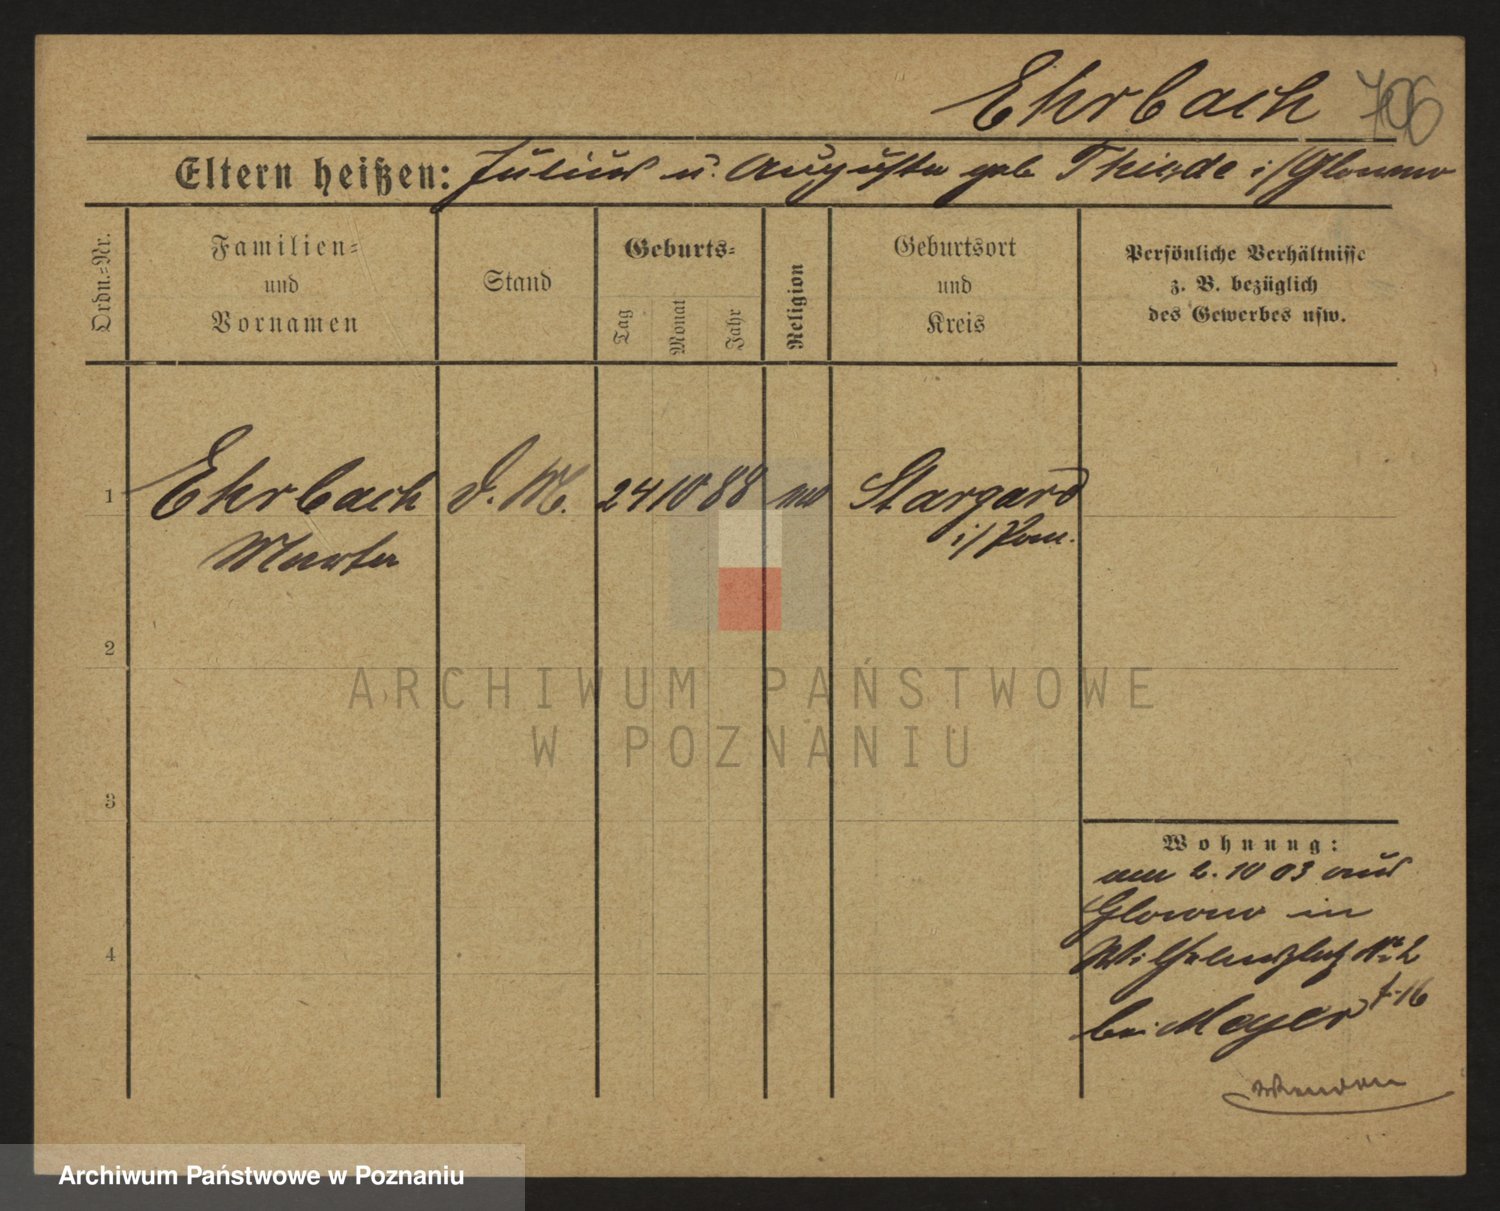 Ehrbach 706
Eltern heißen: Julius u. Auguste geb Thiede i/Glowno
Ordn.=Nr.
Familien=
und
Vornamen
Stand
Geburts=
Tag
Monat
Jahr
Religion
Geburtsort
und
Kreis
Persönliche Verhältnisse
z. B. bezüglich
des Gewerbes usw.
1 Ehrbach D. M. 24 10 88 Stargard
Martha i/Pom.
2
3
4
ARCHIWUM PAŃSTWOWE
W POZNANIU
Wohnung:
am 2. 10 03 aus
Glowno in
Wilhelmsplatz No 2
bei Meyer
Archiwum Państwowe w Poznaniu